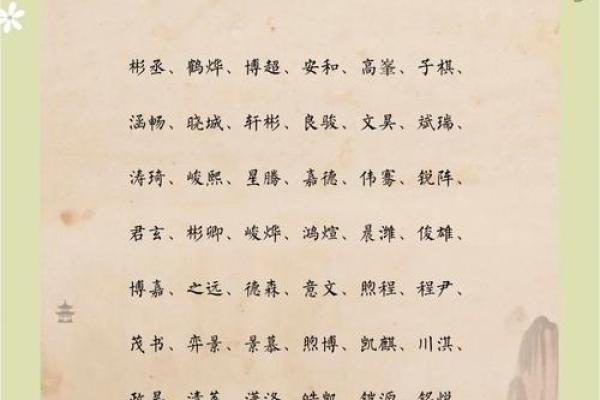 彬丞、鹤烨、博超、安和、高峯、子棋、
涵畅、晓城、轩彬、良骏、文昊、斌瑞、
涛琦、峻熙、星腾、嘉德、伟骞、锐阵、
君玄、彬卿、峻烨、鸿煊、晨潍、俊雄、
博嘉、之远、德森、意文、煦程、程尹、
茂书、弈景、景慕、煦博、凯麒、川淇、